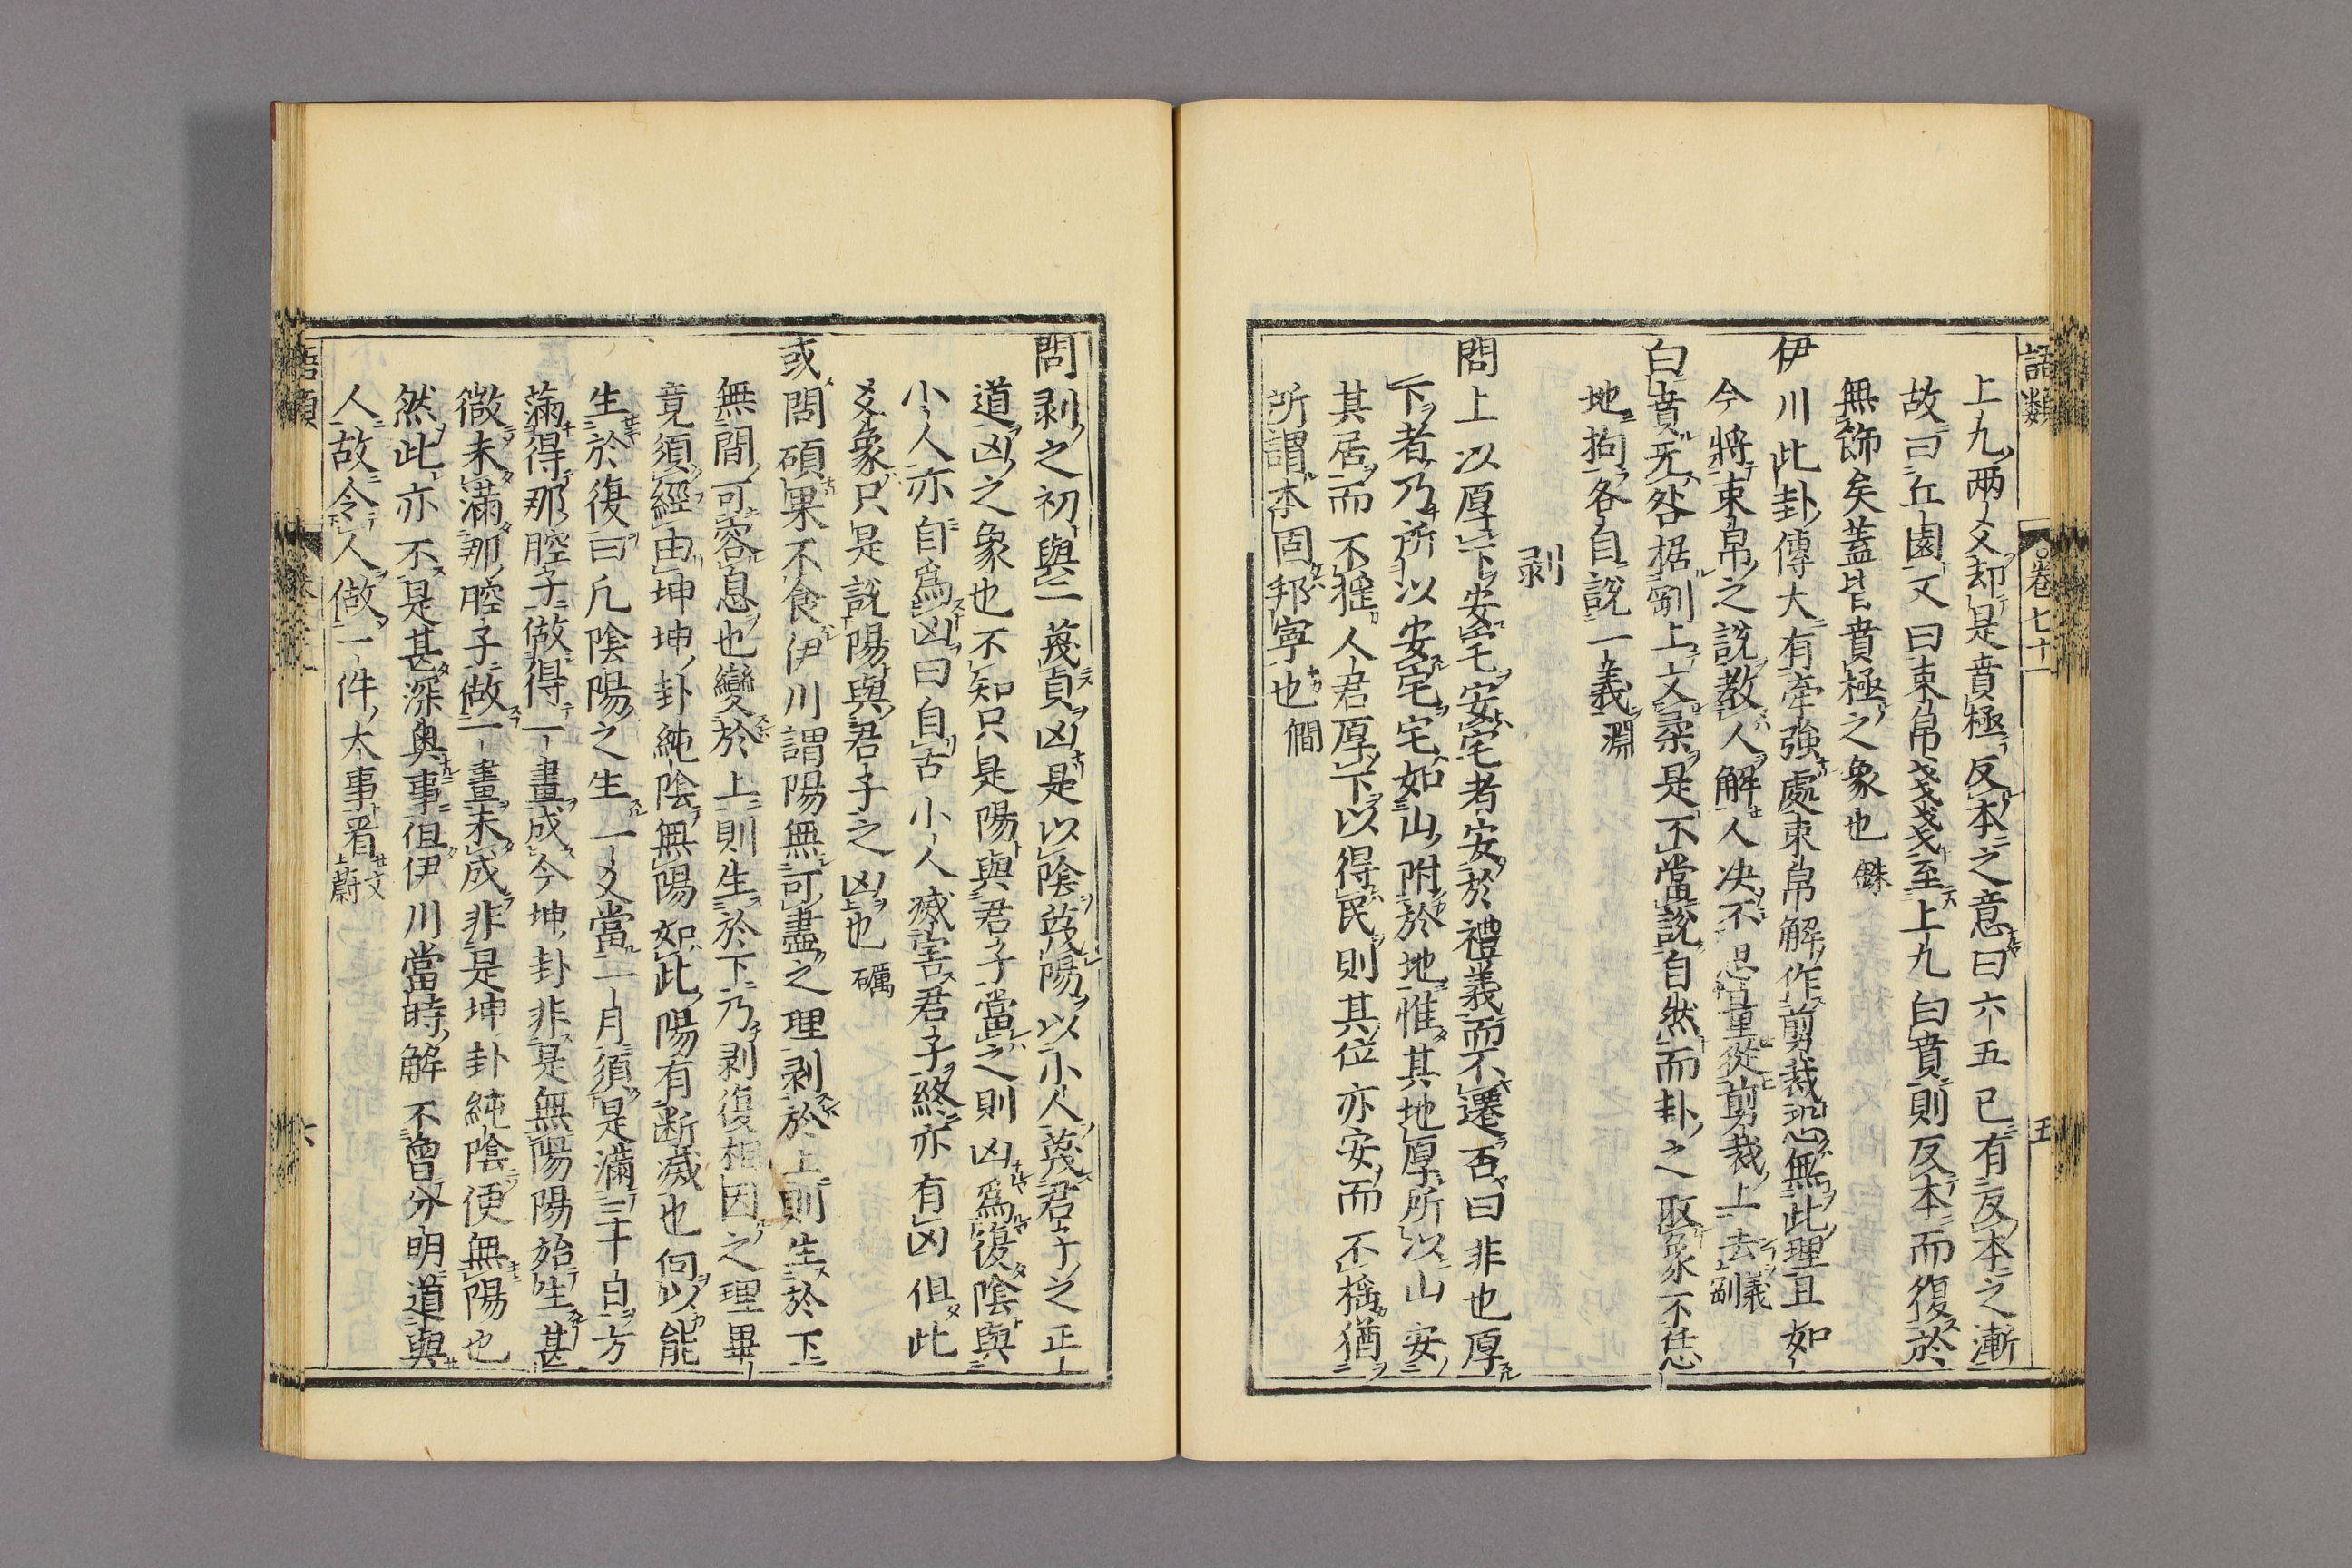 語類 卷七十一 五
上九兩爻却是賁極反本之意曰六五已有反本之漸
故曰丘園又曰束帛戔戔至上九白賁則反本而復於
無飾矣蓋皆賁極之象也 銖
伊川此卦傳大有牽強處束帛解作剪裁恐無此理且如
今將束帛之說教人解人决不思量從剪裁上去 義剛
白賁无咎據剛上文柔是不當說自然而卦之取象不恁
地拘各自說一義 淵
剥
問上以厚下安宅安宅者安於禮義而不遷否曰非也厚
下者乃所以安宅宅如山附於地惟其地厚所以山安
其居而不揺人君厚下以得民則其位亦安而不搖猶
所謂本固邦寧也 僩
問剥之初與二蔑貞凶是以陰蔑陽以小人蔑君子之正
道凶之象也不知只是陽與君子當之則凶爲復陰與
小人亦自爲凶曰自古小人滅害君子終亦有凶但此
爻象只是說陽與君子之凶也 礪
或問碩果不食伊川謂陽無可盡之理剥於上則生於下
無間可容息也變於上則生於下乃剥復相因之理畢
竟須經由坤坤卦純陰無陽如此陽有断滅也何以能
生於復曰凡陰陽之生一爻當一月須是滿三十日方
滿得那腔子做得一畫成今坤卦非是無陽陽始生甚
微未滿那腔子做一畫未成非是坤卦純陰便無陽也
然此亦不是甚深奥事但伊川當時解不曾分明道與
人故令人做一件大事看 文蔚
語類 六